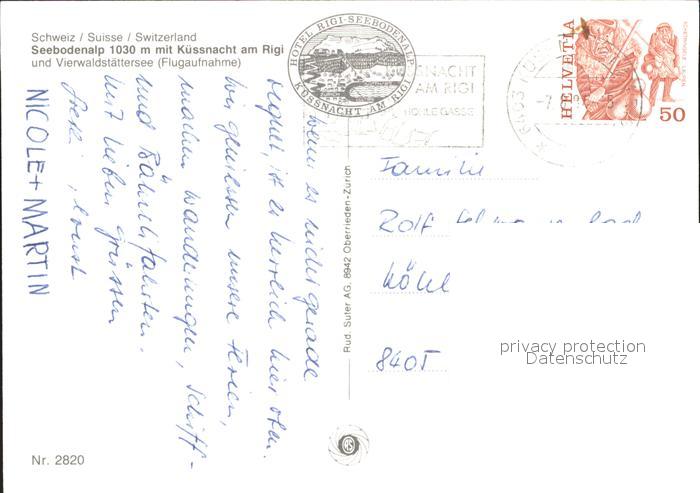 Schweiz / Suisse / Switzerland
Seebodenalp 1030 m mit Küssnacht am Rigi
und Vierwaldstättersee (Flugaufnahme)
HOTEL RIGI-SEEBODENALP
KÜSSNACHT AM RIGI
SNACHT
AM RIGI
HOHLE GASSE
HELVETIA
50
Wenn es nicht gerade
regnet, ist es herrlich hier oben.
Wir geniessen unsere Ferien,
machen Wanderungen, Schiff-
und Bähnlifahrten.
Mit lieben Grüssen
NICOLE + MARTIN
Rud. Suter AG, 8942 Oberrieden-Zürich
Familie
Rolf
8405
privacy protection
Datenschutz
Nr. 2820